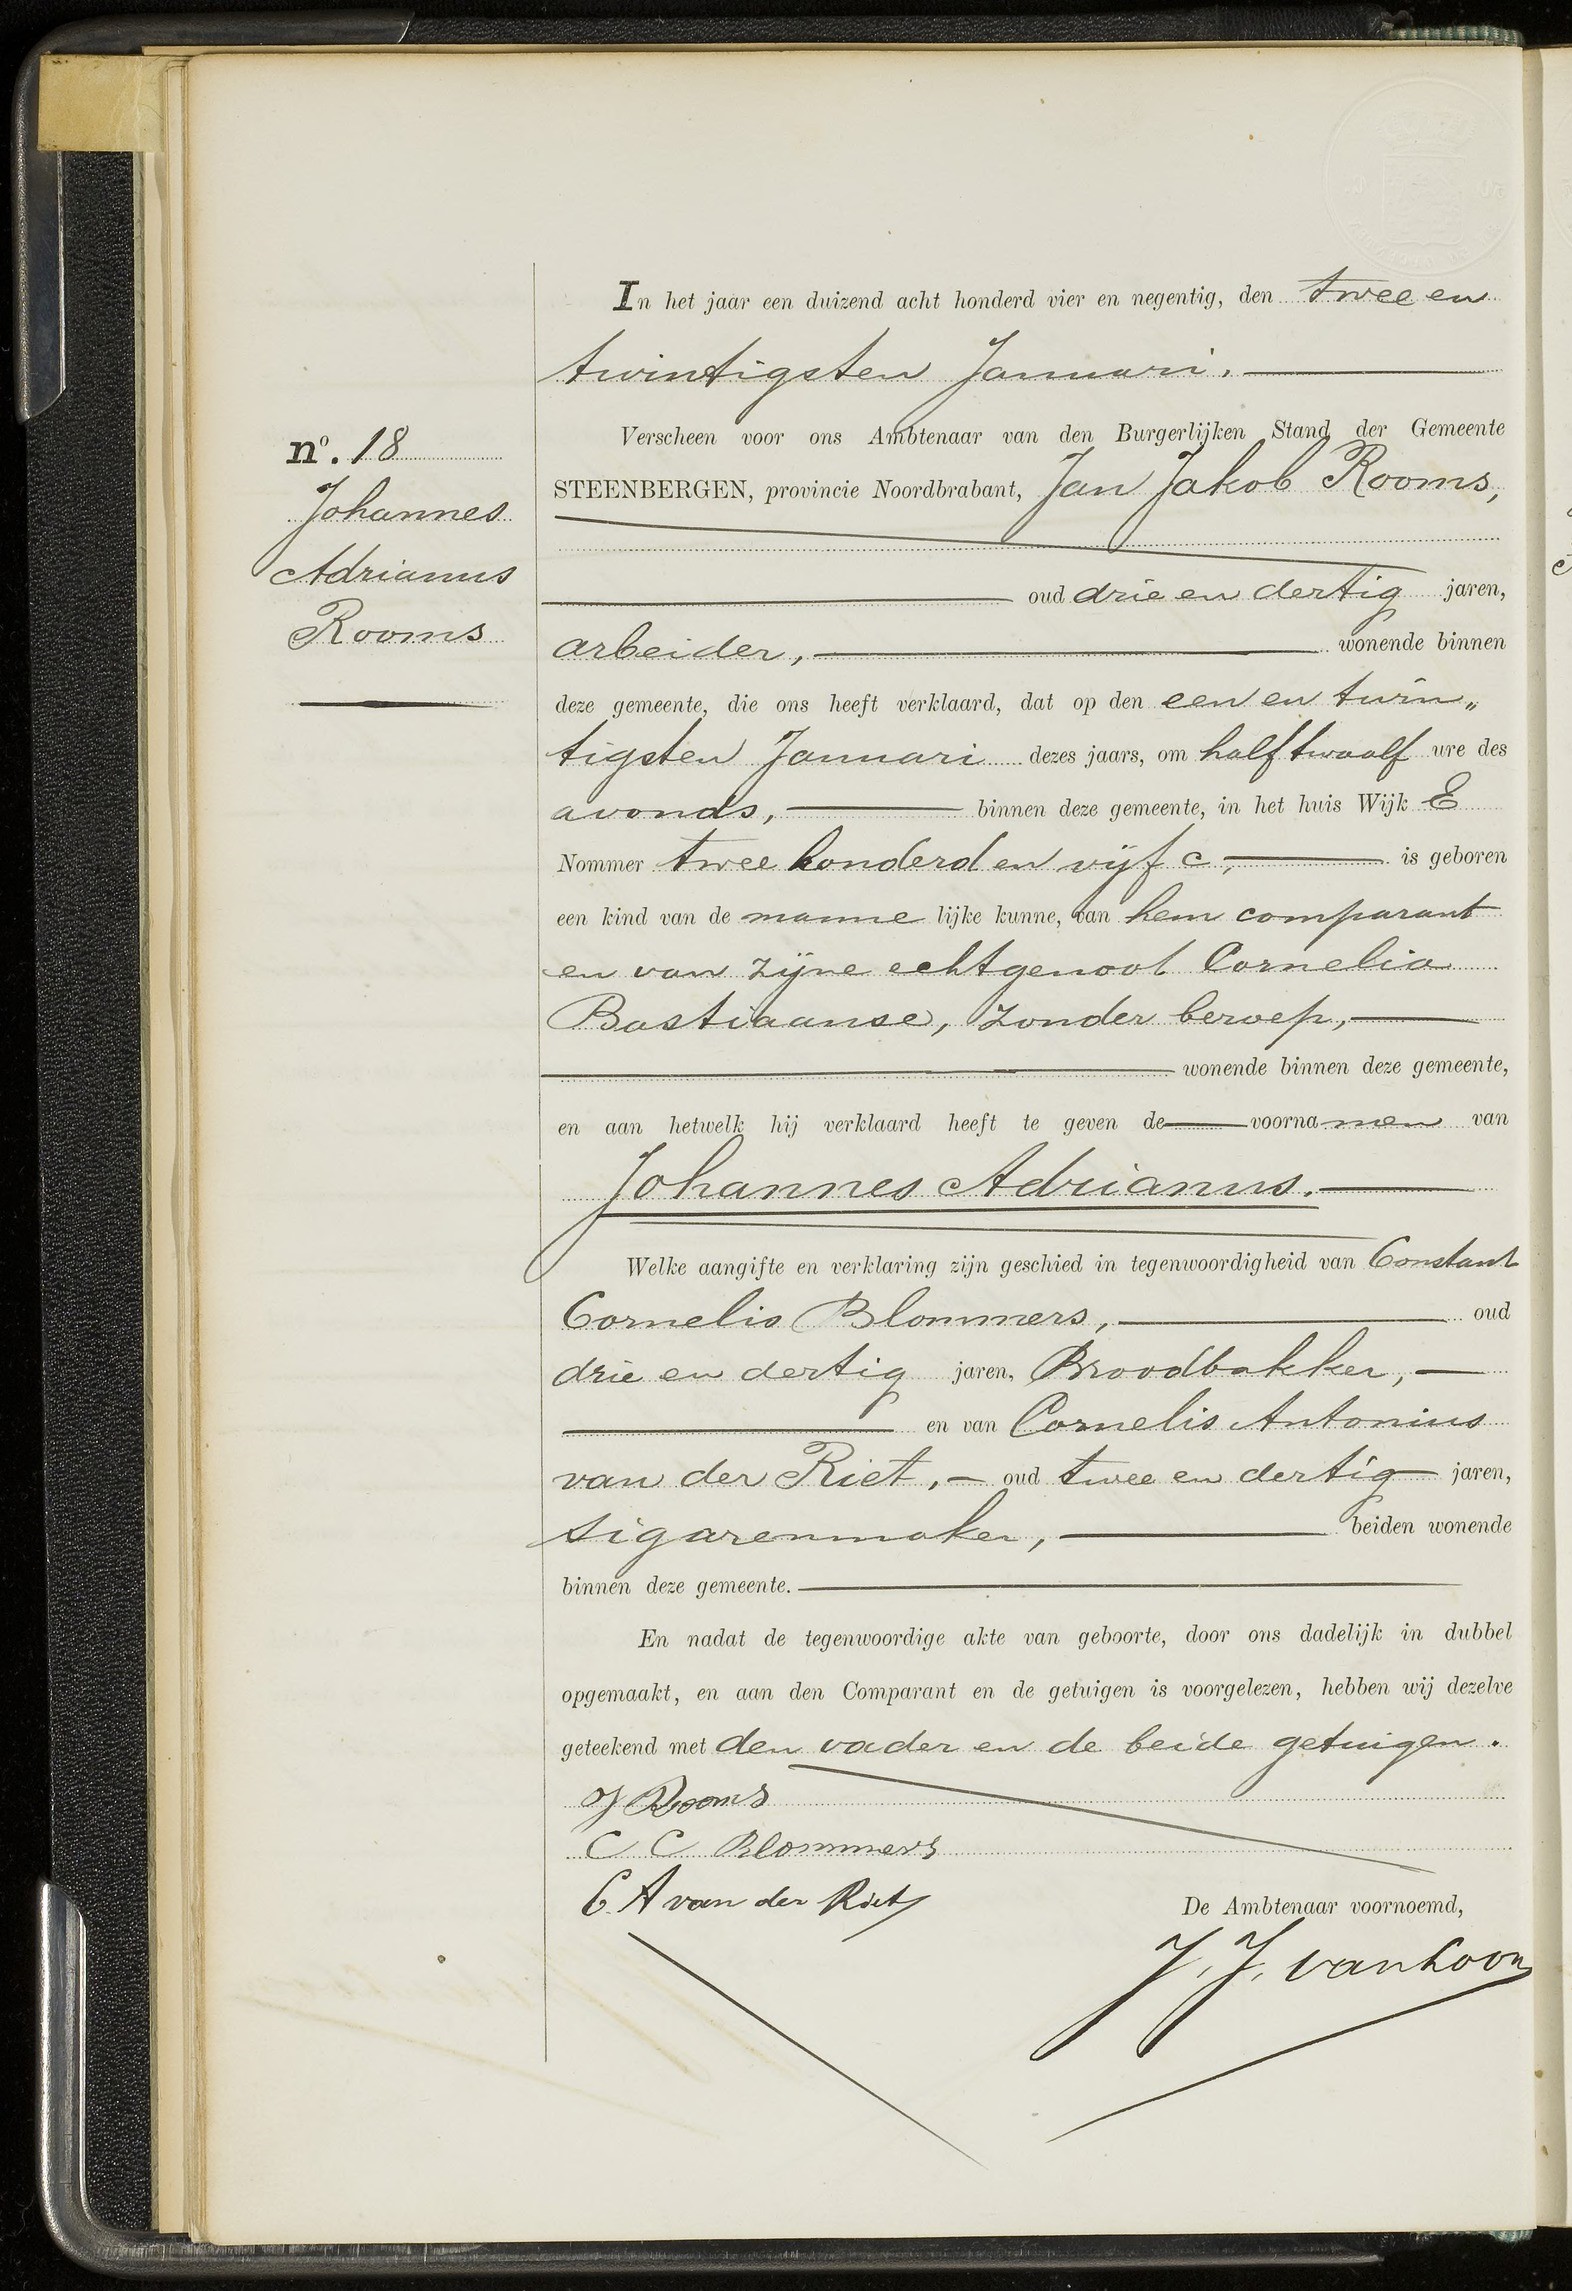 In het jaar een duizend acht honderd vier en negentig, den twee en
twintigsten Januari.
nº. 18
Johannes
Adrianus
Rooms
Verscheen voor ons Ambtenaar van den Burgerlijken Stand der Gemeente
STEENBERGEN, provincie Noordbrabant, Jan Jakob Rooms,
oud drie en dertig jaren,
arbeider, wonende binnen
deze gemeente, die ons heeft verklaard, dat op den een en twin„
tigsten Januari dezes jaars, om half twaalf ure des
avonds, binnen deze gemeente, in het huis Wijk E
Nommer twee honderd en vijf c, is geboren
een kind van de manne lijke kunne, van hem comparant
en van zijne echtgenoot Cornelia
Bastiaanse, zonder beroep,
wonende binnen deze gemeente,
en aan hetwelk hij verklaard heeft te geven de voornamen van
Johannes Adrianus.
Welke aangifte en verklaring zijn geschied in tegenwoordigheid van Constant
Cornelis Blommers, oud
drie en dertig jaren, Broodbakker,
en van Cornelis Antonius
van der Riet, oud twee en dertig jaren,
sigarenmaker, beiden wonende
binnen deze gemeente.
En nadat de tegenwoordige akte van geboorte, door ons dadelijk in dubbel
opgemaakt, en aan den Comparant en de getuigen is voorgelezen, hebben wij dezelve
geteekend met den vader en de beide getuigen.
J Rooms
C C Blommers
C. A van der Riet
De Ambtenaar voornoemd,
J. J. van Loon